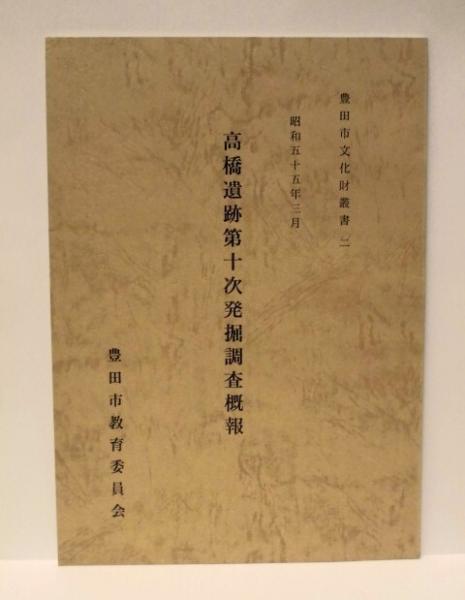 豊田市文化財叢書二
昭和五十五年三月
高橋遺跡第十次発掘調査概報
豊田市教育委員会